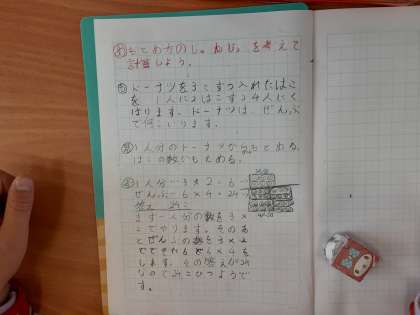 め もとめ方のしゅるいを考えて
計算しよう。
も ドーナツを3こずつ入れたはこ
を1人に2はこずつ4人にく
ばります。ドーナツは、ぜんぶ
で何こいりますか。
1人分のドーナツからもとめる
はこの数からもとめる。
1人分…3×2=6
ぜんぶ…6×4=24
答え 24こ
まず一人分の数を3×
2でやります。そのあ
とぜんぶの数を3×2
でできた6を6×4を
します。その答えが24
なので24こひつようで
す。